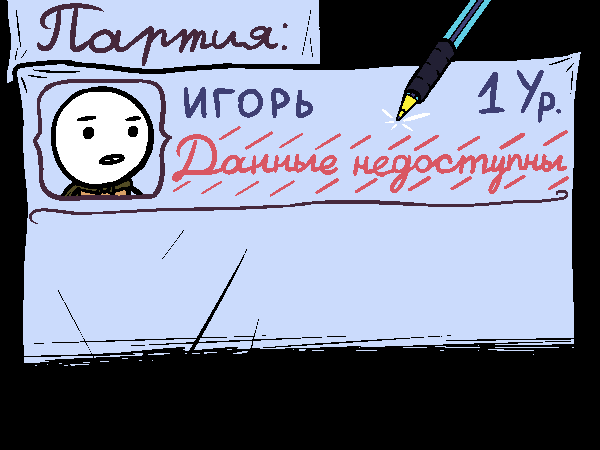 Партия:
ИГОРЬ 1 Ур.
Данные недоступны